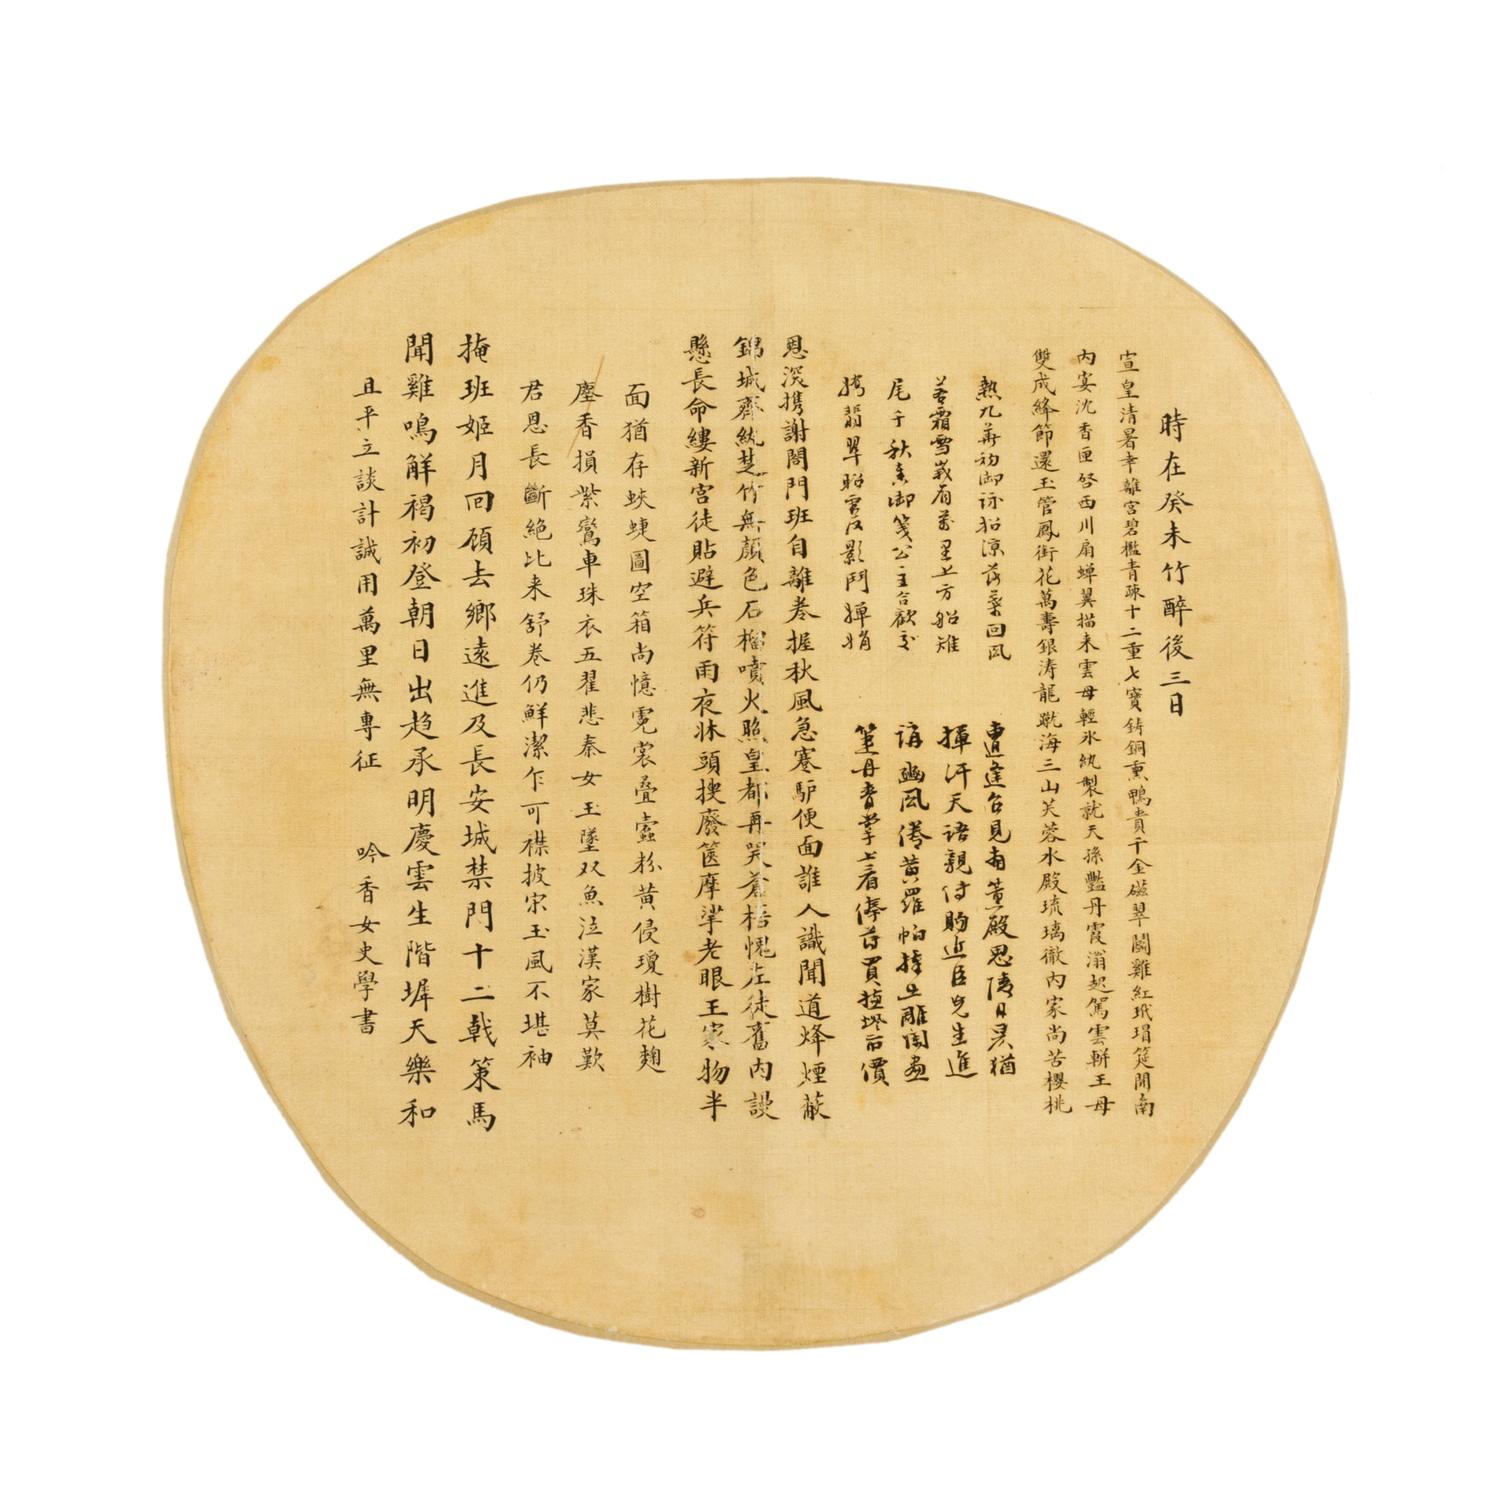 時在癸未竹醉後三日
宣皇清暑幸離宮碧檻青疎十二重七寶鑄銅熏鴨貴千金磁翠鬬雞紅玳瑁筵開南
內宴沈香匣啓西川扇蟬翼描來雲母輕氷紈製就天孫豔丹霞滃起駕雲軿王母
雙成絳節還玉管鳳銜花萬壽銀涛龍戲海三山芙蓉水殿琉璃徹內家尚苦櫻桃
熱九華初御詠招涼落葉回風
若霜雪嵗有萬里上方船雉
尾千秋金御箋公主合歡
翡翠昭影鬥嬋娟
遭逢召見南薰殿思陵日昃猶
揮汗天語親付助近臣先生進
講豳風倦黃羅帕捧出雕闌畫
筆丹青掌上看俸薄買價
恩深携謝閤門班自離卷握秋風急蹇驴便面誰人識聞道烽煙蔽
錦城齊紈楚竹無顏色石榴噴火照皇都再哭蒼梧愧左徒舊內謾
懸長命縷新宮徒貼避兵符雨夜牀頭搜廢篋摩挲老眼王家物半
面猶存蛺蜨圖空箱尚憶霓裳疊蠹粉黃侵瓊樹花麹
塵香損紫鸞車珠衣五翟悲秦女玉墜双魚泣漢家莫歎
君恩長斷絶比来舒卷仍鮮潔乍可襟披宋玉風不堪袖
掩班姬月回頋去鄉遠進及長安城禁門十二戟策馬
聞雞鳴觧褐初登朝日出趋承明慶雲生階墀天樂和
且平立談計誠用萬里無專征
吟香女史學書